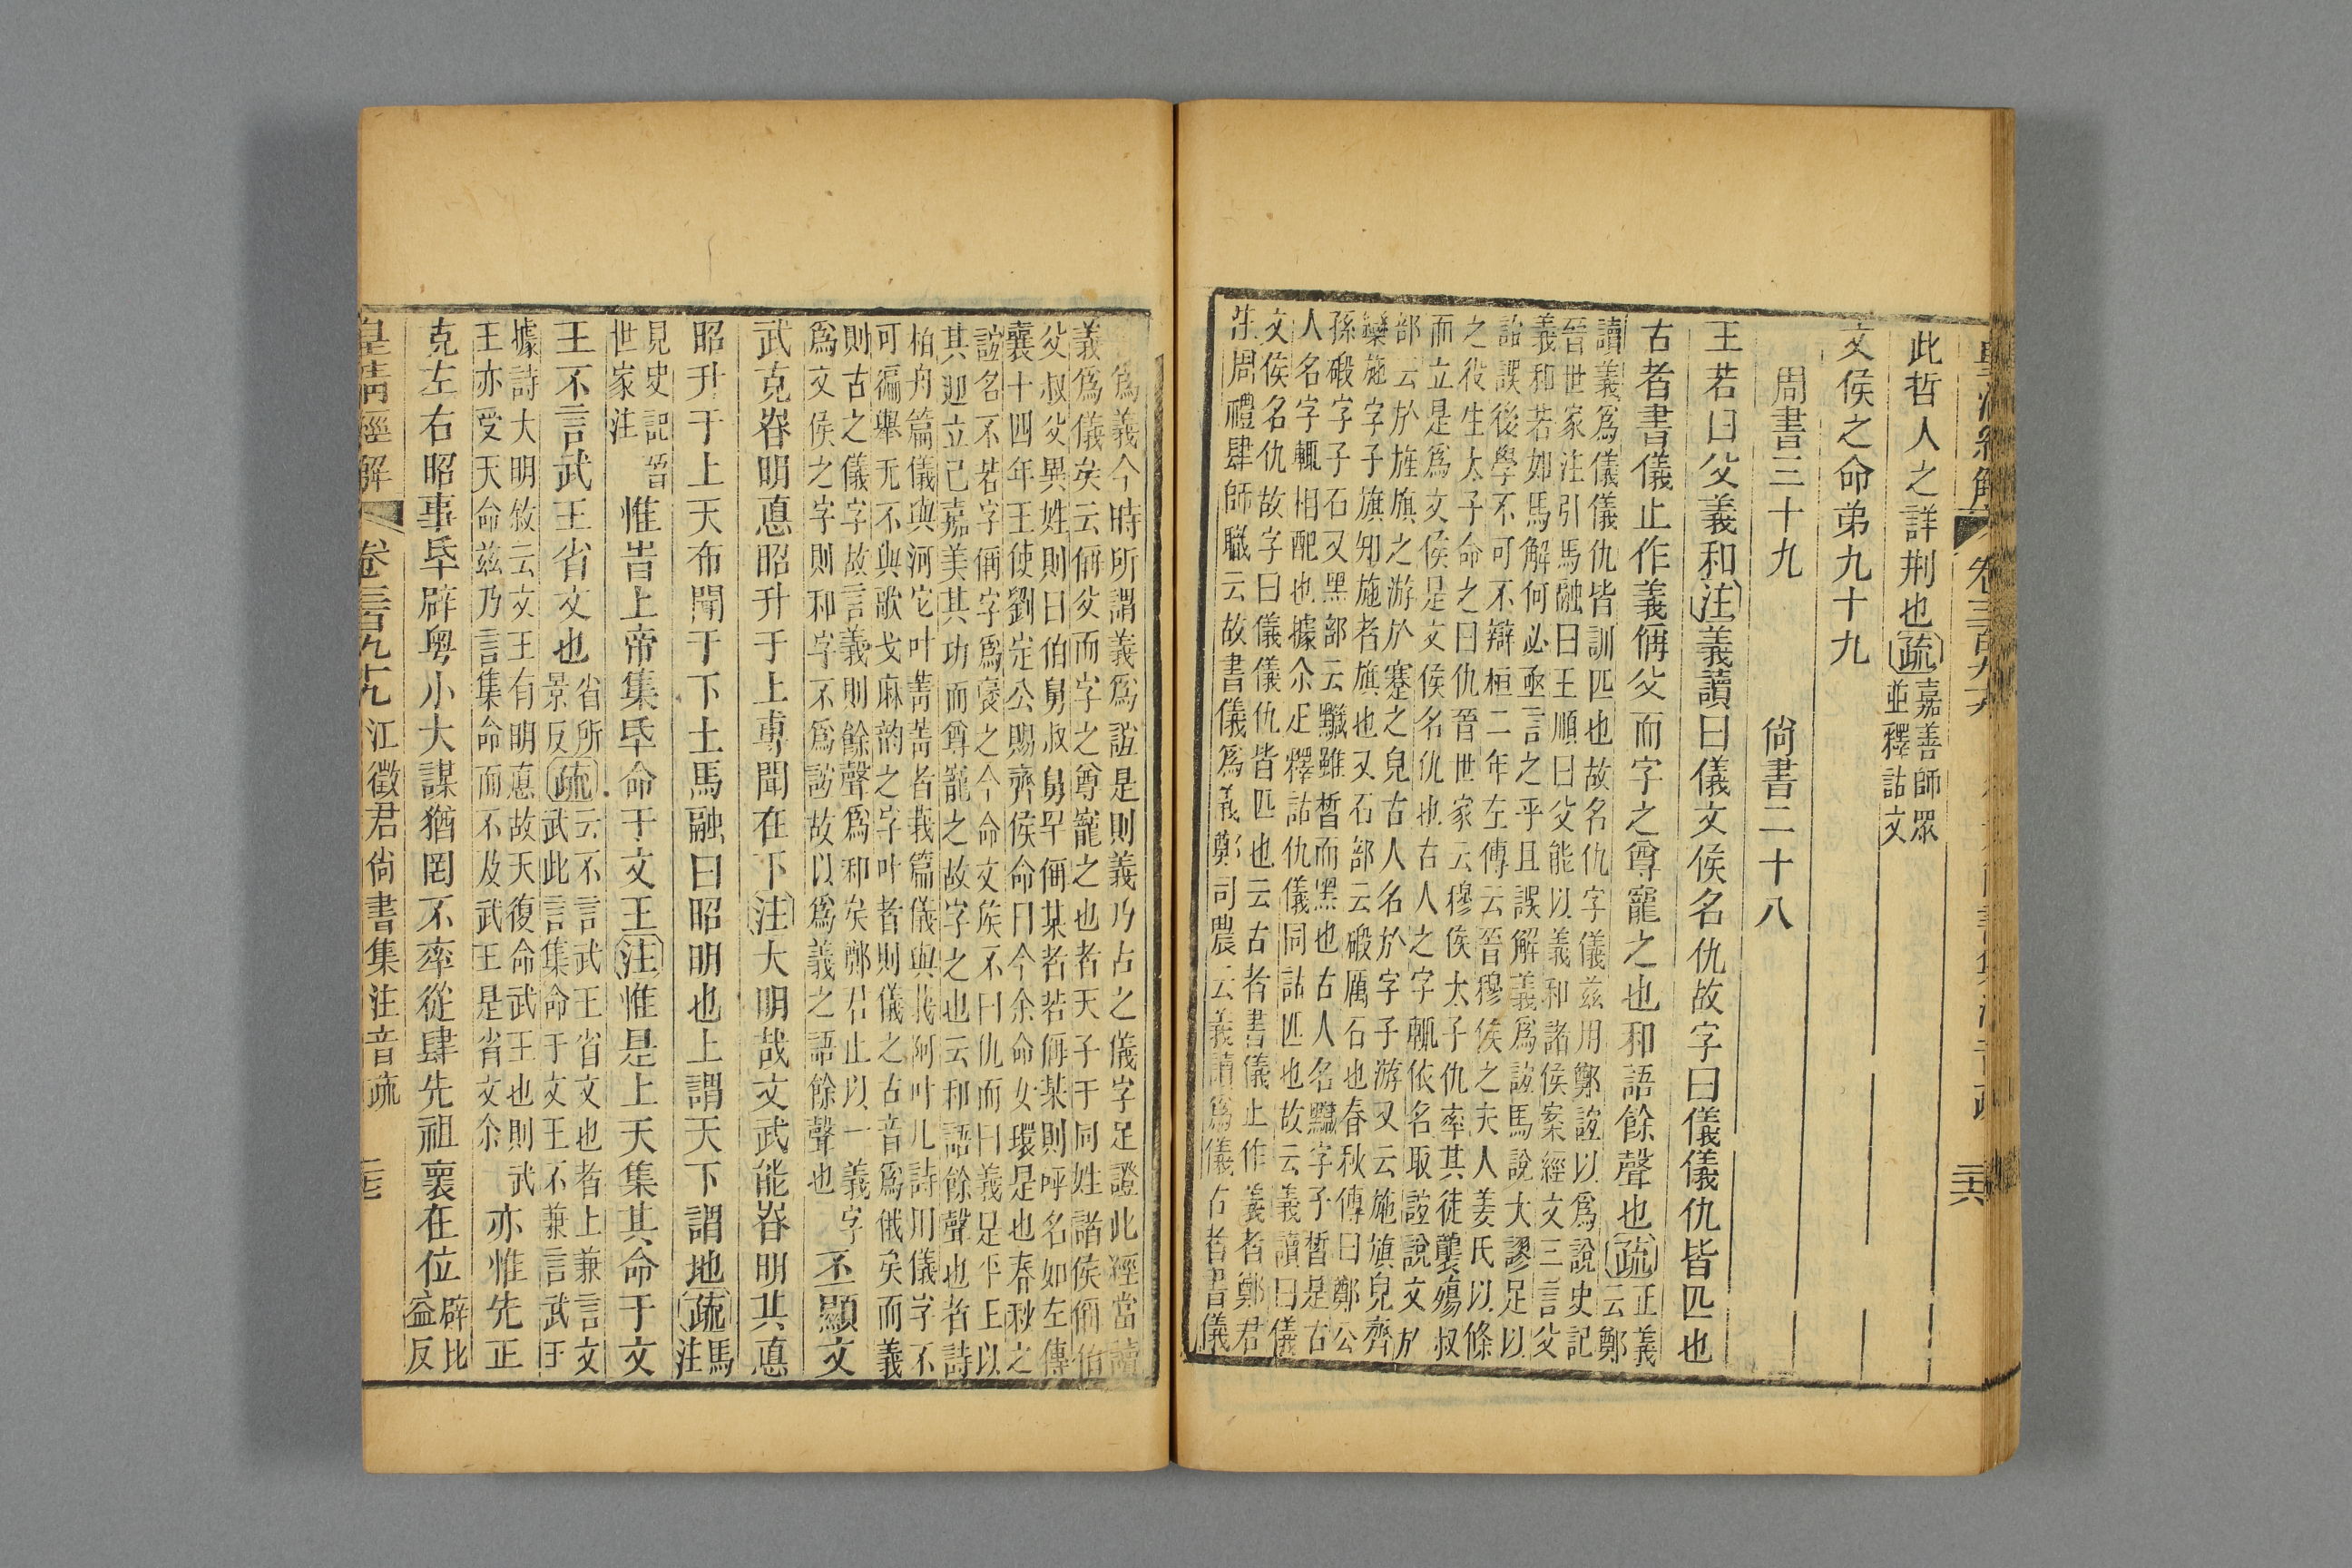 此哲人之詳荆也疏嘉善師眾
並釋詁文
文侯之命弟九十九
周書三十九　尙書二十八
王若曰父義和注義讀曰儀文侯名仇故字曰儀儀仇皆匹也
古者書儀止作義偁父而字之尊寵之也和語餘聲也疏正義
云鄭
讀義爲儀儀仇皆訓匹也故名仇字儀兹用鄭誼以爲說史記
晉世家注引馬融曰王順曰父能以義和諸侯案經文三言父
義和若如馬解何必亟言之乎且誤解義爲誼馬說大謬足以
詒誤後學不可不辯桓二年左傳云晉穆侯之夫人姜氏以條
之役生太子命之曰仇晉世家云穆侯太子仇率其徒襲殤叔
而立是爲文侯是文侯名仇也古人之字輒依名取誼說文㫃
部云㫃旌旗之游㫃蹇之皃古人名㫃字子游又云施旗皃齊
欒施字子旗知施者旗也又石部云碫厲石也春秋傳曰鄭公
孫碫字子石又黑部云黬雖晳而黑也古人名黬字子晳是古
人名字輒相配也據尒疋釋詁仇儀同詁匹也故云義讀曰儀
文侯名仇故字曰儀儀仇皆匹也云古者書儀止作義者鄭君
注周禮肆師職云故書儀爲義鄭司農云義讀爲儀古者書儀
爲義今時所謂義爲誼是則義乃古之儀字足證此經當讀
義爲儀矣云偁父而字之尊寵之也者天子于同姓諸侯偁伯
父叔父異姓則曰伯舅叔舅罕偁某者若偁某則呼名如左傳
襄十四年王使劉定公賜齊侯命曰今余命女環是也春秋之
誼名不若字偁字爲褒之今命文侯不曰仇而曰義足平王以
其迎立己嘉美其功而尊寵之故字之也云和語餘聲也者詩
柏舟篇儀與河它叶菁菁者莪篇儀與莪阿叶凡詩用儀字不
可徧舉无不與歌戈麻韵之字叶者則儀之古音爲俄矣而義
則古之儀字故言義則餘聲爲和矣鄭君止以一義字
爲文侯之字則和字不爲誼故以爲義之語餘聲也
丕顯文
武克眘明悳昭升于上尃聞在下注大明哉文武能眘明其悳
昭升于上天布聞于下土馬融曰昭明也上謂天下謂地疏馬
注
見史記晉
世家注
惟旹上帝集氒命于文王注惟是上天集其命于文
王不言武王省文也省所
景反疏云不言武王省文也者上兼言文
武此言集命于文王不兼言武王
據詩大明敘云文王有明悳故天復命武王也則武
王亦受天命兹乃言集命而不及武王是省文尒
亦惟先正
克左右昭事氒辟粤小大謀猶罔不率從肆先祖襄在位辟比
益反
皇清經解　卷三百九十九　江徵君尙書集注音疏　三七